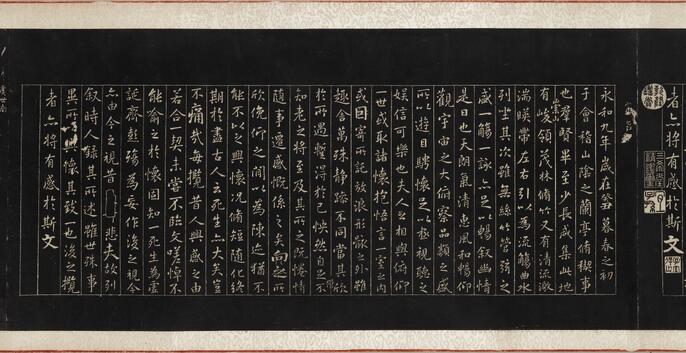 者亦將有感於斯文
永和九年歲在癸丑暮春之初會
于會稽山陰之蘭亭脩稧事
也羣賢畢至少長咸集此地
有崇山峻領茂林脩竹又有清流激
湍暎帶左右引以為流觴曲水
列坐其次雖無絲竹管弦之
盛一觴一詠亦足以暢敘幽情
是日也天朗氣清惠風和暢仰
觀宇宙之大俯察品類之盛
所以遊目騁懷足以極視聽之
娛信可樂也夫人之相與俯仰
一世或取諸懷抱悟言一室之內
或因寄所託放浪形骸之外雖
趣舍萬殊靜躁不同當其欣
於所遇暫得於己怏然自足不
知老之將至及其所之既惓情
隨事遷感慨係之矣向之所
欣俛仰之間以為陳迹猶不
能不以之興懷況脩短隨化終
期於盡古人云死生亦大矣豈
不痛哉每攬昔人興感之由
若合一契未嘗不臨文嗟悼不
能喻之於懷固知一死生為虛
誕齊彭殤為妄作後之視今
亦由今之視昔悲夫故列
敘時人錄其所述雖世殊事
異所以興懷其致一也後之攬
者亦將有感於斯文